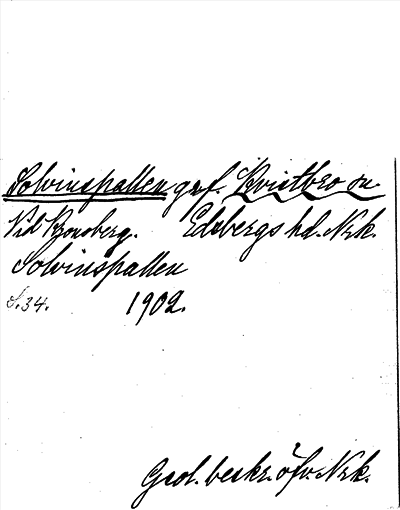 Solvinspallen guf. Kvistbro sn.
Vid Bonsberg. Edsbergs hd. Nrk.
Solvinspallen
S. 34. 1902.
Geol. beskr. öfv. Nrk.